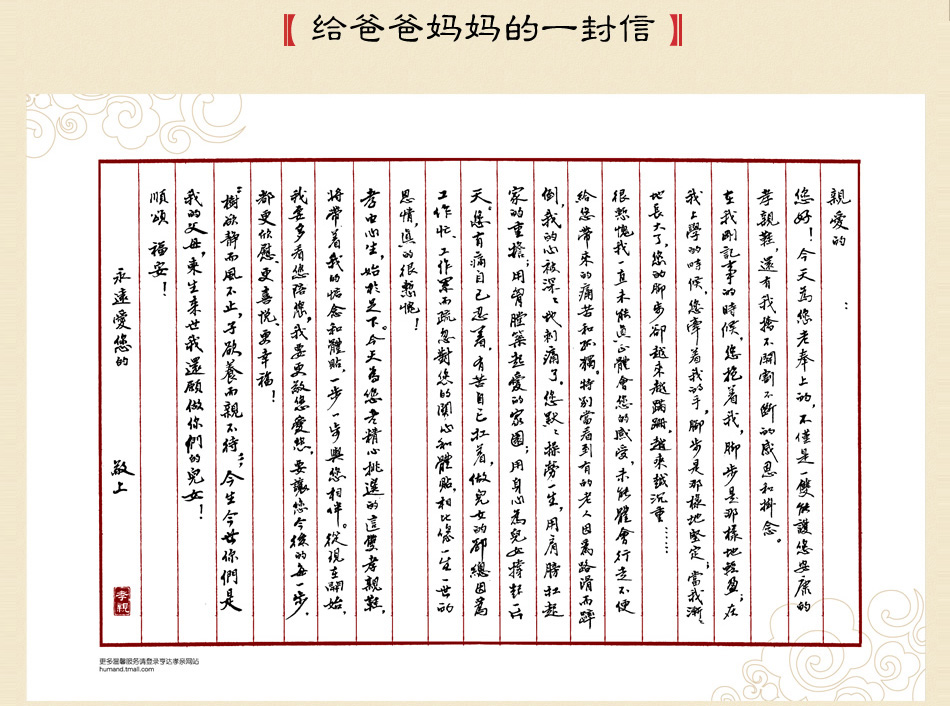 【给爸爸妈妈的一封信】
親愛的 ：
您好！今天為您老奉上的，不僅是一雙能護您安康的
孝親鞋，還有我擔不開割不斷的感恩和掛念。
在我剛記事的時候，您抱着我，腳步是那樣地輕盈；在
我上學的時候，您牽着我的手，腳步是那樣地堅定；當我漸漸
地長大了，您的腳步卻越來越蹣跚，越來越沉重……
很慚愧我一直未能真正體會您的感受，未能體會行走不便
給您帶來的痛苦和孤獨。特別當看到有的老人因為路滑而蹄
倒，我的心被深深地刺痛了。您默默操勞一生，用肩膀扛起
家的重擔；用胸膛築起愛的家園；用身心為兒女撐起一片
天。您有痛自己忍着，有苦自己扛着，做兒女的卻總因為
工作忙、工作累而疏忽對您的關心和體貼，相比您一生一世的
恩情，真的很慚愧！
孝由心生，始於足下。今天為您老精心挑選的這雙孝親鞋，
將帶着我的惦念和體貼，一步一步與您相伴。從現在開始，
我要多看您陪您，我要更敬您愛您，要讓您今後的每一步，
都更欣慰、更喜悅、更幸福！
“樹欲靜而風不止，子欲養而親不待”，今生今世你們是
我的父母，來生來世我還願做你們的兒女！
順頌 福安！
永遠愛您的 敬上
孝親
更多温馨服务请登录亨达孝亲网站
humand.tmall.com